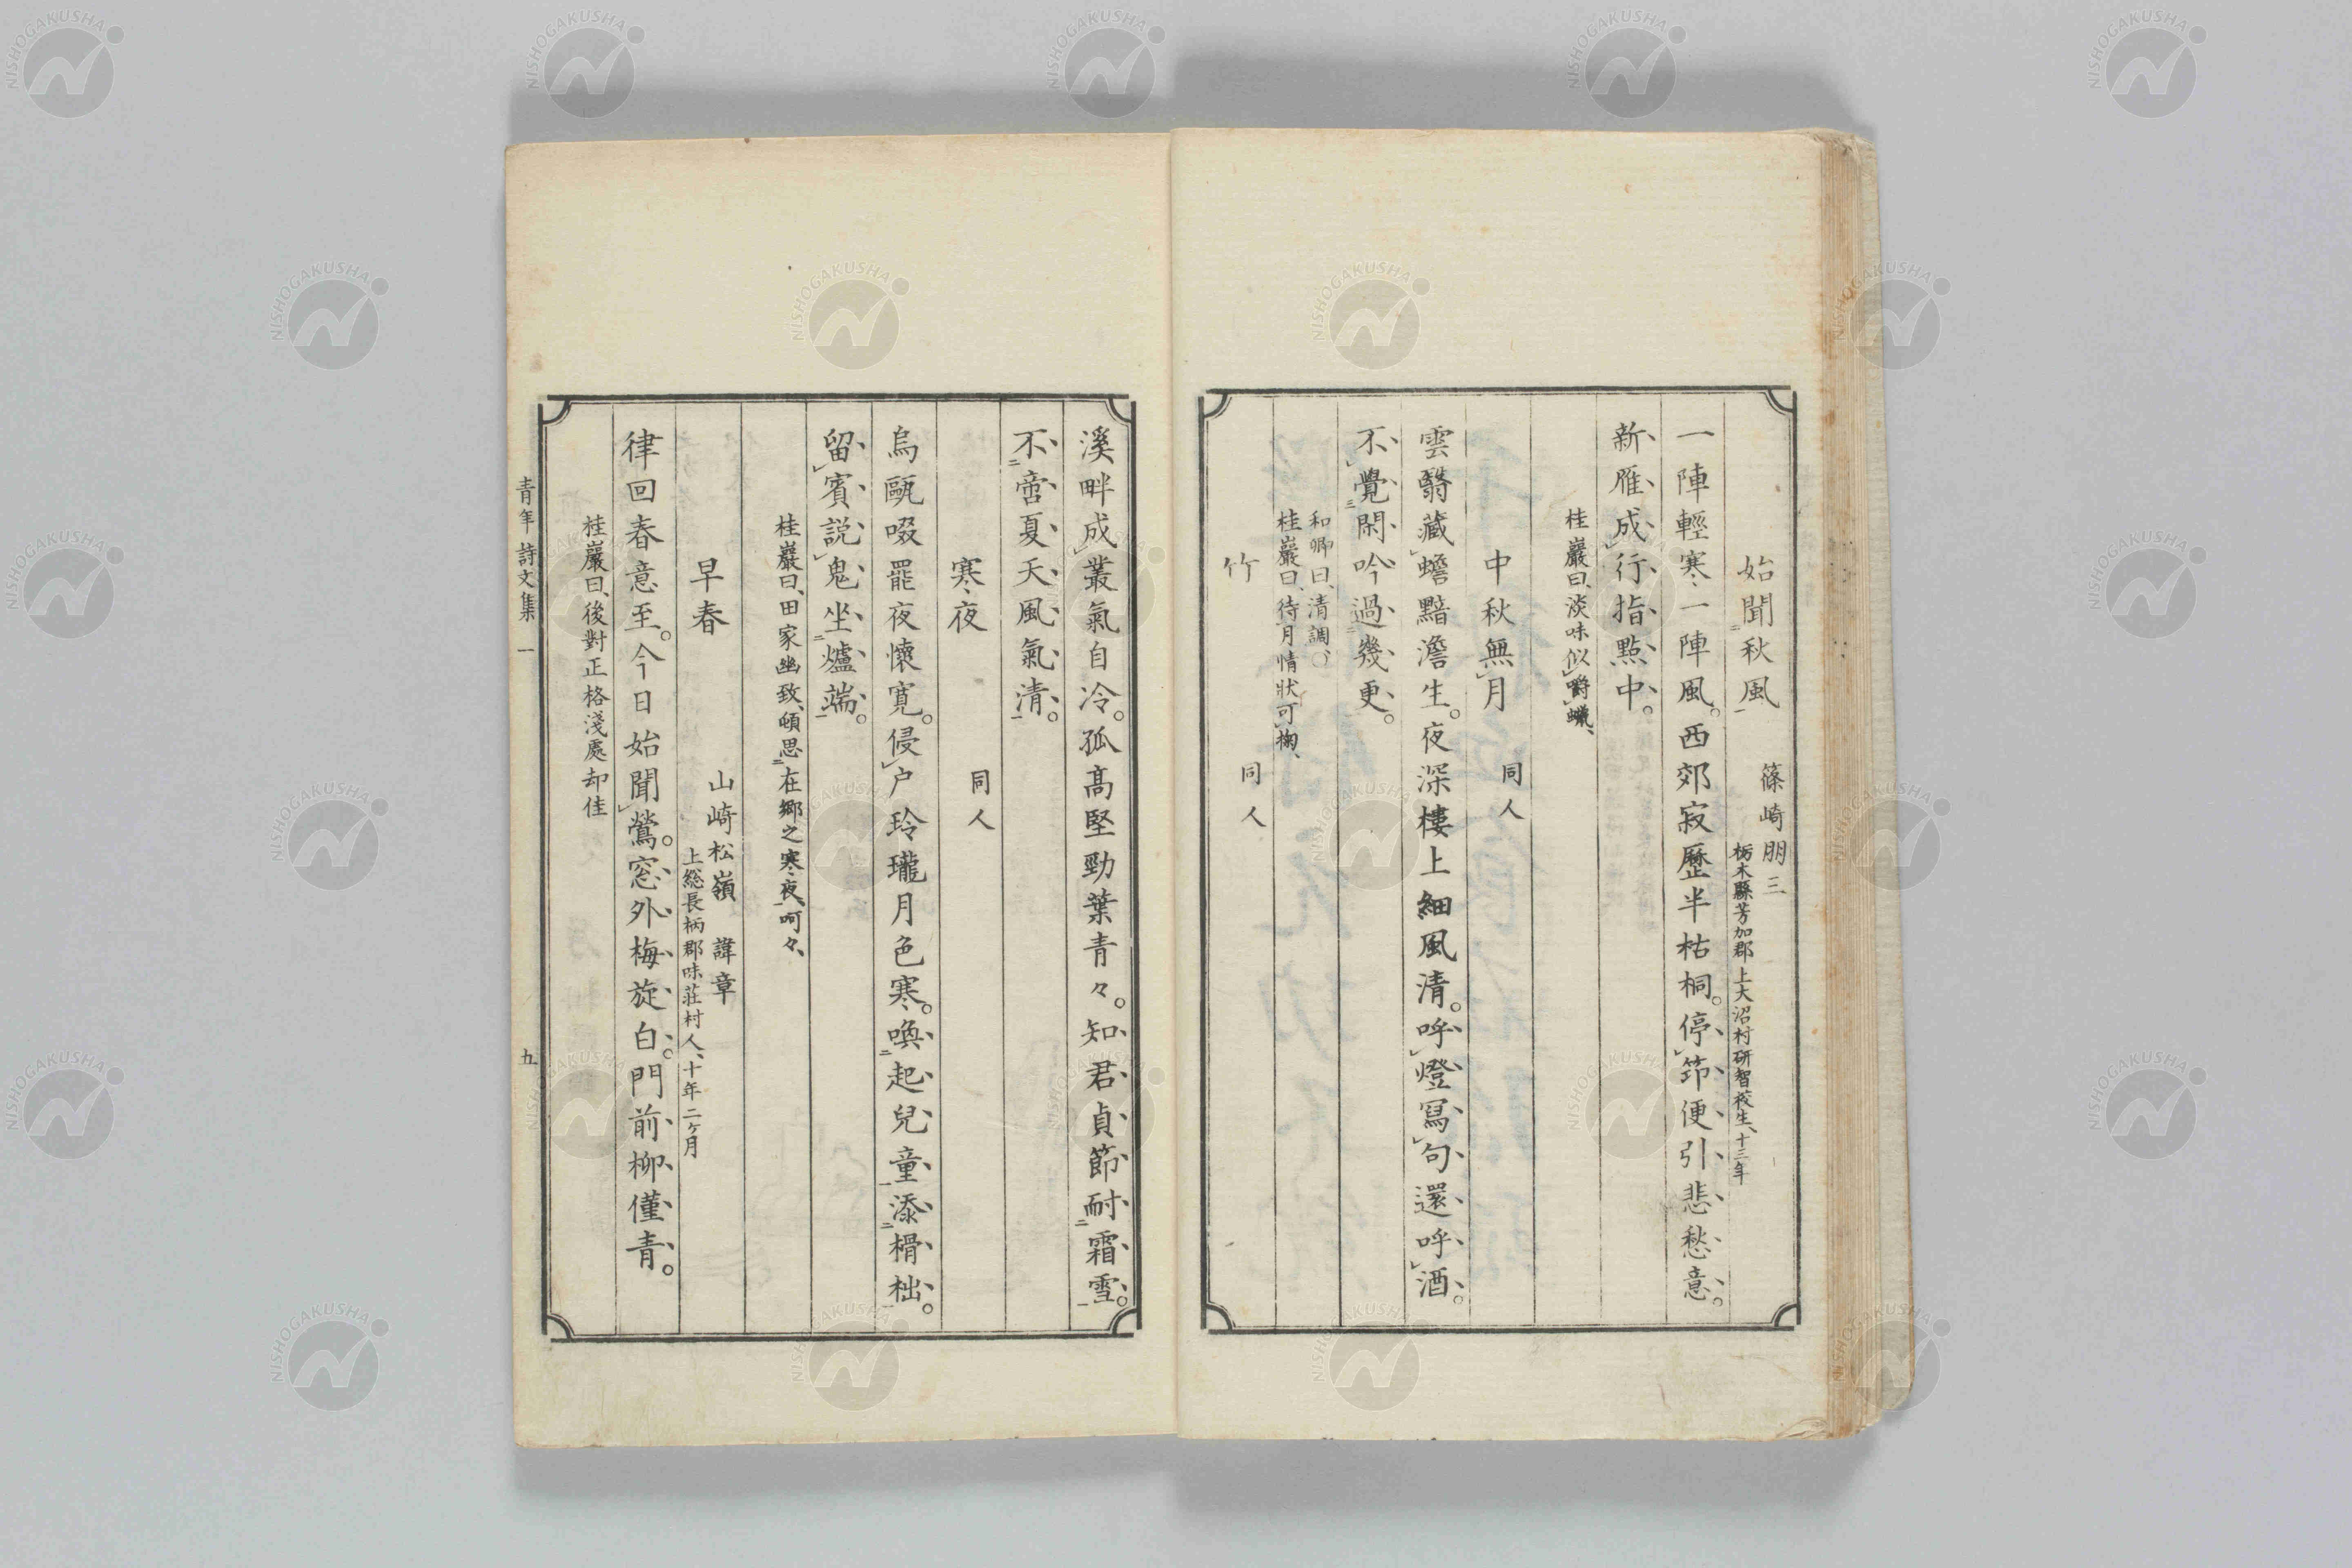 始聞秋風 篠崎朋三 栃木縣芳加郡上大沼村研智校生、十三年
一陣輕寒一陣風。西郊寂歷半枯桐。停筇便引悲愁意。
新雁成行指點中。
桂巖曰、淡味似嚼蠟、
中秋無月 同人
雲翳藏蟾黯澹生。夜深樓上細風清。呼燈寫句還呼酒。
不覺閑吟過幾更。
和卿曰、清調、
桂巖曰、待月情狀可掬、
竹 同人
溪畔成叢氣自冷。孤高堅勁葉青々。知君貞節耐霜雪。
不啻夏天風氣清。
寒夜 同人
烏甌啜罷夜懷寬。侵戶玲瓏月色寒。喚起兒童添榾柮。
留賓説鬼坐爐端。
桂巖曰、田家幽致、頓思在鄉之寒夜、呵々、
早春 山崎松嶺 諱章 上総長柄郡味莊村人、十年二ヶ月
律回春意至。今日始聞鶯。窓外梅旋白。門前柳僅青。
桂巖曰、後對正格淺處却佳
青年詩文集 一 五
NISHOGAKUSHA